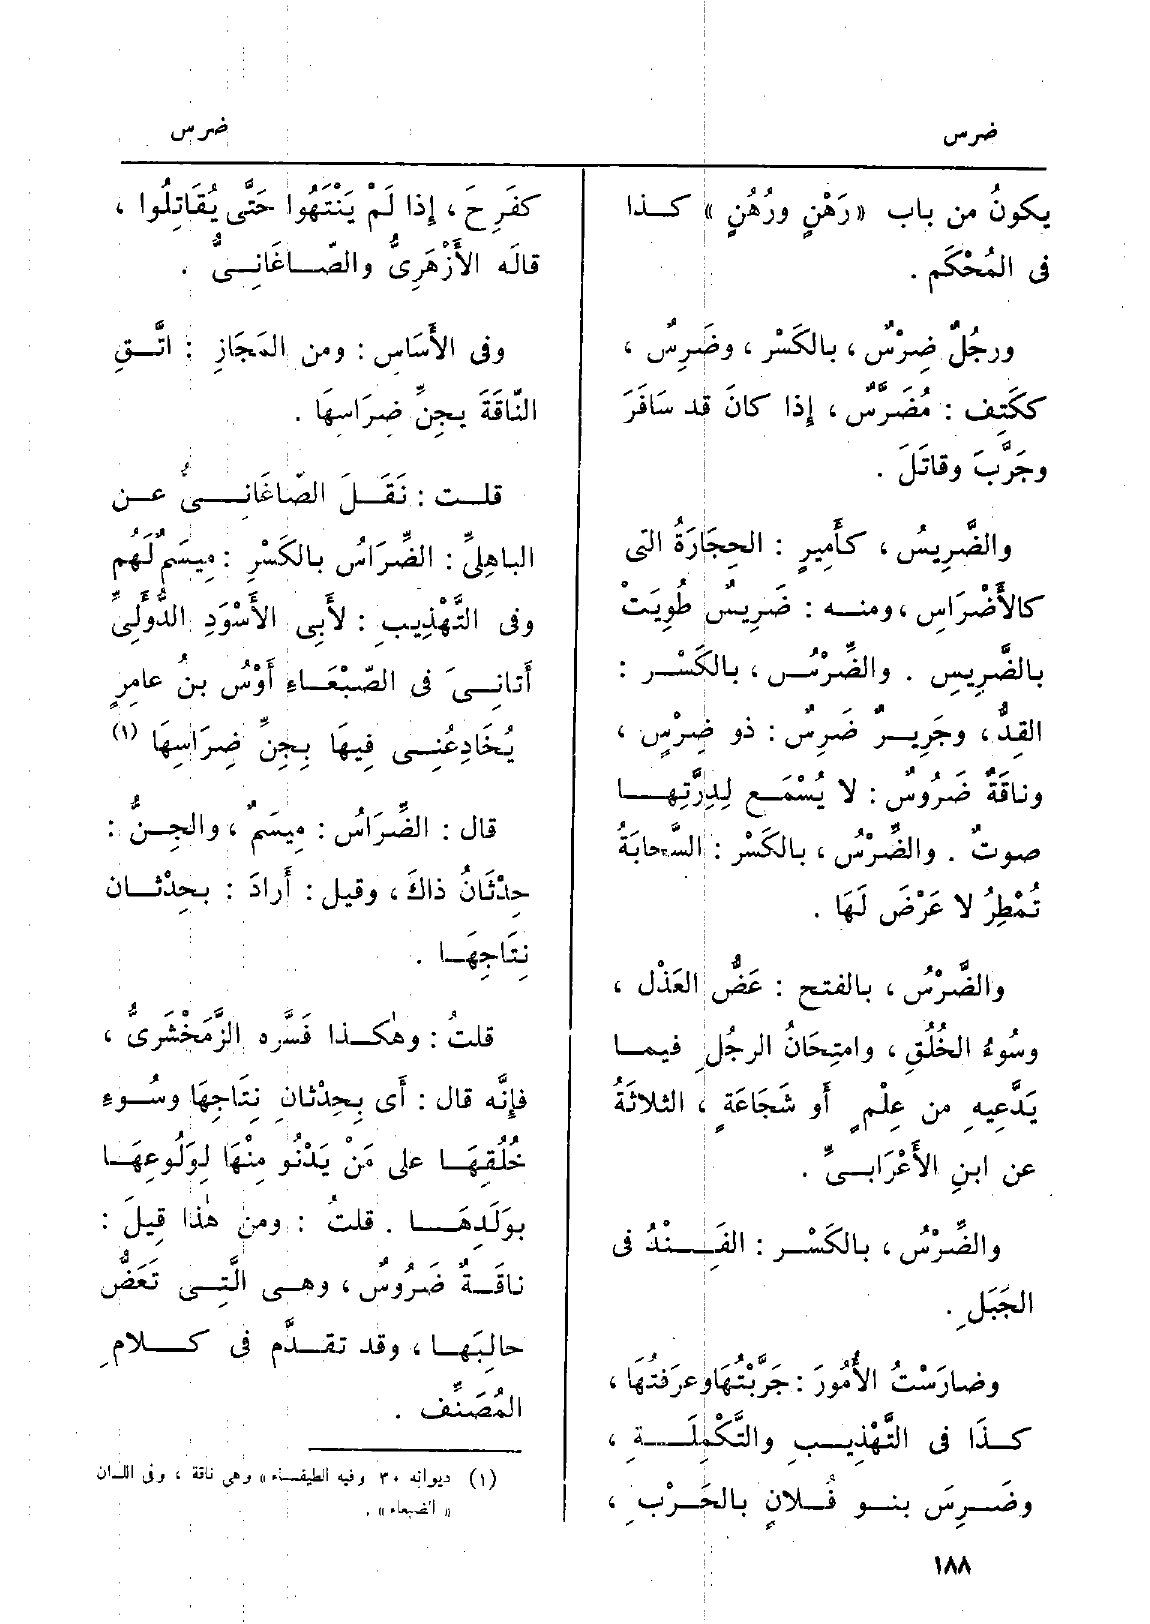 ضرس
ضرس
يكونُ من باب «رَهْنٍ ورُهُنٍ» كـذا
فى المُحْكَم .
ورجُلٌ ضِرْسٌ ، بالكَسْر ، وضَرِسٌ ،
ككَتِف : مُضَرَّسٌ ، إِذا كانَ قد سَافَرَ
وجَرَّبَ وقاتَلَ .
والضَّرِيسُ ، كأَمِيرٍ : الحِجَارَةُ التى
كالأَضْرَاسِ ، ومنـه : ضَرِيسٌ طُوِيَتْ
بالضَّرِيسِ . والضِّرْسُ ، بالكَسْر :
القِدُّ ، وجَرِيـرٌ ضَرِسٌ : ذو ضِرْسٍ ،
وناقَةٌ ضَرُوسٌ : لا يُسْمَـع لِدِرَّتِهـا
صوتٌ . والضِّرْسُ ، بالكَسْر : السَّحابَةُ
تُمْطِرُ لا عَرْضَ لَهَا .
والضَّرْسُ ، بالفتح : عَضُّ العَذْل ،
وسُوءُ الخُلُقِ ، وامتِحَانُ الرجُلِ فيمـا
يَدَّعِيهِ من عِلْمٍ أَو شَجَاعَةٍ ، الثلاثَةُ
عن ابنِ الأَعْرَابـىِّ .
والضِّرْسُ ، بالكَسْـر : الفَـنْدُ فى
الجَبَلِ .
وضارَسْتُ الأُمُورَ : جَرَّبْتُهَا وعرَفتُهَا ،
كـذَا فى التَّهْذِيـبِ والتَّكْمِلَـةِ ،
وضَـرِسَ بنـو فُـلانٍ بالحَـرْبِ ،
كفَرِحَ ، إِذا لَمْ يَنْتَهُوا حَتَّى يُقَاتِلُوا ،
قالَه الأَزْهَرِىُّ والصّاغَانِـىُّ .
وفى الأَسَاسِ : ومن المَجَازِ : اتَّـقِ
النّاقَةَ بجِنِّ ضِرَاسِهَا .
قلـت : نَقَـلَ الصّاغَانِـىُّ عـن
الباهِلِىِّ : الضِّرَاسُ بالكَسْرِ : مِيسَمٌ لَهُم
وفى التَّهْذِيبِ : لأَبِى الأَسْوَدِ الدُّؤَلِىِّ
أَتانِـىَ فى الضّبْعَـاءِ أَوْسُ بنُ عامِرٍ
يُخَادِعُنِـى فِيهَا بِجِنِّ ضِرَاسِهَا (١)
قال : الضِّرَاسُ : مِيسَمٌ ، والجِـنُّ :
حِدْثَانُ ذاكَ ، وقيل : أَرادَ : بحِدْثـان
نِتَاجِهَـا .
قلتُ : وهٰكـذا فَسَّره الزَّمَخْشَرِىُّ ،
فإِنَّه قال : أَى بِحِدْثانِ نِتَاجِهَا وسُـوءِ
خُلُقِهَـا على مَنْ يَدْنُو مِنْهَا لِوَلُوعِهَـا
بوَلَدِهَـا . قلتُ : ومن هٰذا قِيلَ :
ناقَـةٌ ضَرُوسٌ ، وهـى الَّتِـى تَعَضُّ
حالِبَهَـا ، وقد تقـدَّم فى كـلامِ
المُصَنِّف .
(١) ديوانه ٣٠ وفيه الطيفـاء» وهي ناقة ، وفى اللسان
« الضبعاء » .
١٨٨